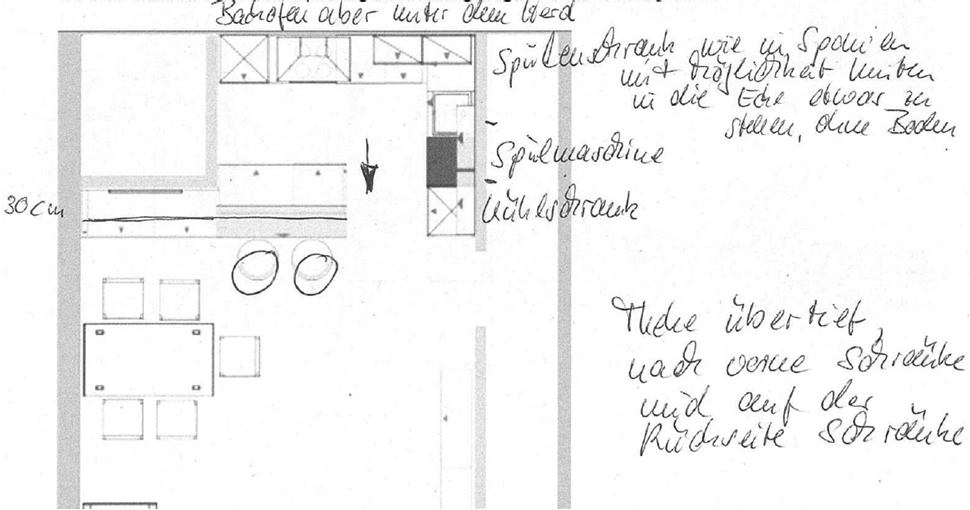 Backofen aber unter dem Herd
Spülenschrank wie in Spanien
mit Möglichkeit hinten
in die Ecke etwas zu
stellen, ohne Boden
Spülmaschine
Kühlschrank
30 cm
Theke übertief,
nach vorne Schränke
und auf der
Rückseite Schränke